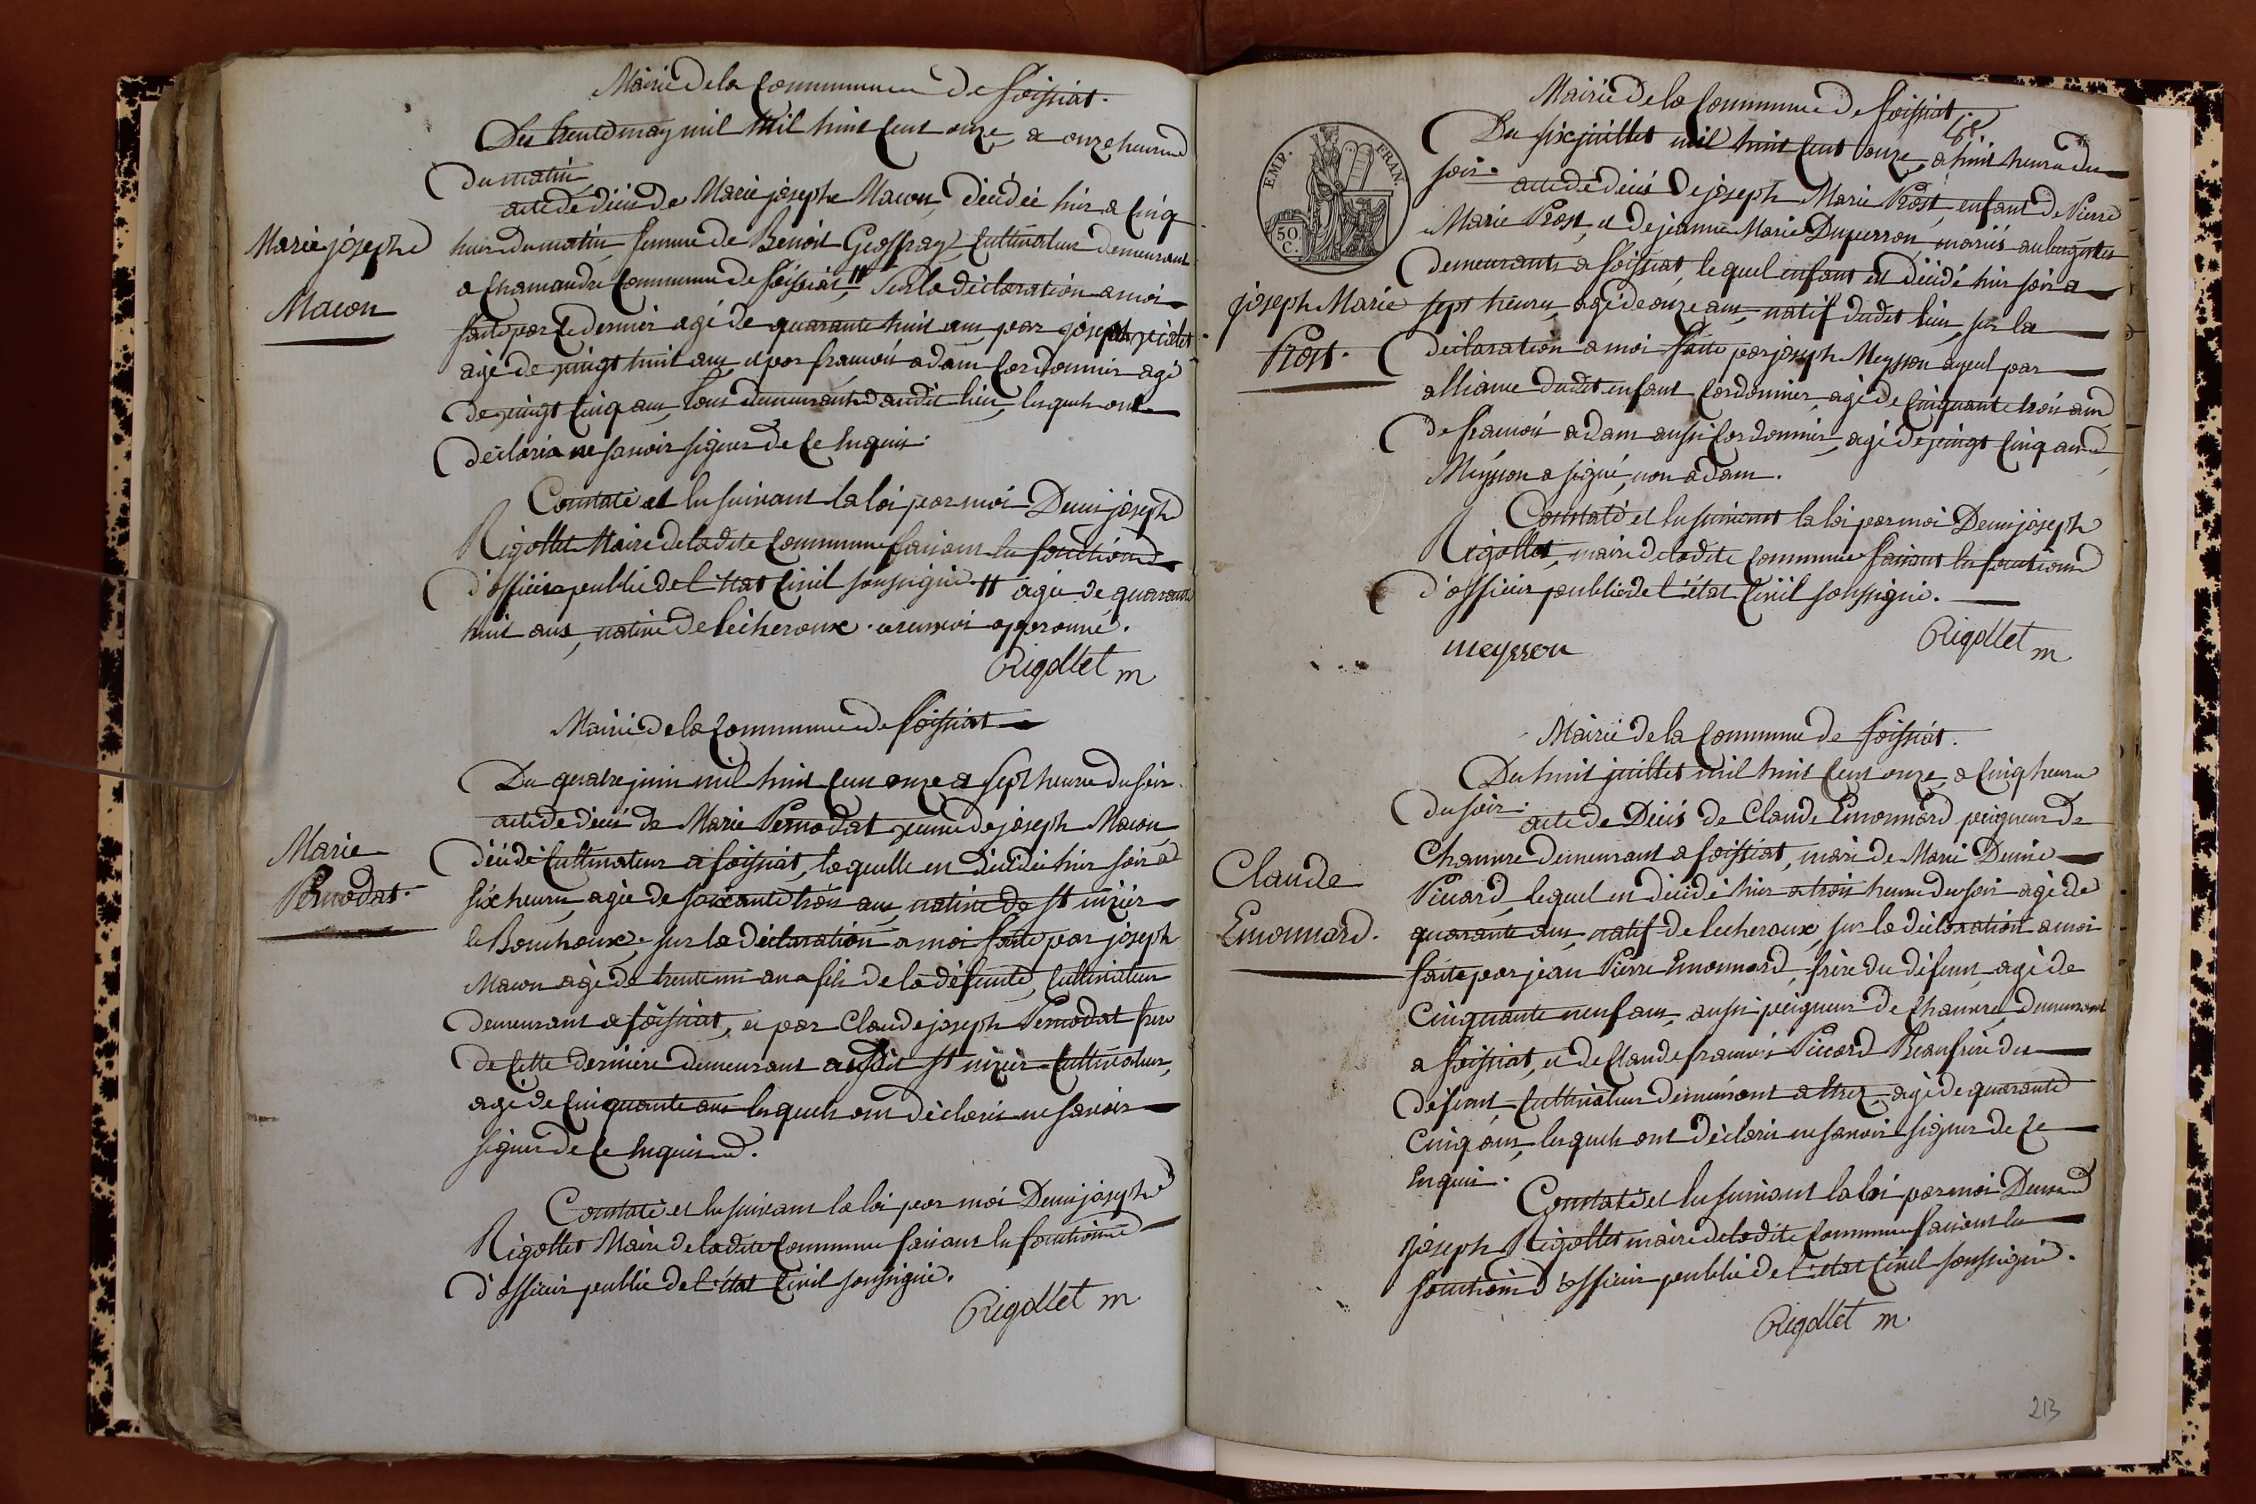 Mairie de la Commune de foissiat.
Du trente may mil huit cent onze, a onze heures
du matin
acte de décés de Marie josephe Macon, décédée hier a cinq
heures du matin, femme de Benoit Geoffray, cultivateur demeurant
a Chamandre commune de foissiat, # sur la déclaration a moi
faite par ce dernier agé de quarante huit ans, par joseph
agé de vingt huit ans, et par francois adam cordonnier agé
de vingt cinq ans, tous demeurants audit lieu, lesquels ont
déclaré ne savoir signer de ce enquis.
Marie josephe
Macon
Constaté et lu suivant la loi par moi Denis joseph
Rigollet Maire de la dite Commune faisant les fonctions
d'officier public de l'état civil soussigné. # agée de quarante
huit ans, native de lécheroux. renvoi approuvé.
Rigollet m
Mairie de la Commune de foissiat
Du quatre juin mil huit cent onze a sept heures du soir.
acte de décés de Marie Pernodat veuve de joseph Macon,
décédé cultivateur a foissiat, laquelle est décédée hier soir a
six heures, agée de soixante trois ans, native de St nizier
le Bouchoux, sur la déclaration a moi faite par joseph
Macon agé de trente un ans fils de la défunte, cultivateur
demeurant a foissiat, et par Claude joseph Pernodat frere
de cette derniere demeurant audit St nizier cultivateur,
agé de cinquante ans lesquels ont déclaré ne savoir
signer de ce enquis.
Marie
Pernodat.
Constaté et lu suivant la loi par moi Denis joseph
Rigollet Maire de la dite Commune faisant les fonctions
d'officier public de l'état civil soussigné.
Rigollet m
EMP. FRAN.
50
C.
Mairie de la Commune de foissiat
Du six juillet mil huit cent onze, a huit heures du
soir.
acte de décés de joseph Marie Prost, enfant de Pierre
Marie Prost, et de jeanne Marie Duperron, mariés aubergistes
demeurants a foissiat, lequel enfant est décédé hier soir a
sept heures, agé de onze ans, natif dudit lieu, sur la
déclaration a moi faite par joseph Meysson ayeul par
alliance dudit enfant cordonnier, agé de cinquante trois ans
de francois adam aussi cordonnier, agé de vingt cinq ans
Meysson a signé, non adam.
joseph Marie
Prost.
Constaté et lu suivant la loi par moi Denis joseph
Rigollet, maire de la dite Commune faisant les fonctions
d'officier public de l'état civil soussigné.
meysson
Rigollet m
Mairie de la Commune de foissiat.
Du huit juillet mil huit cent onze, a cinq heures
du soir.
acte de Décés de Claude Emonnard peigneur de
Chanvre demeurant a foissiat, mari de Marie Denise
Piccard, lequel est décédé hier a trois heures du soir agé de
quarante ans, natif de lecheroux, sur la déclaration a moi
faite par jean Pierre Emonnard, frère du défunt, agé de
cinquante neuf ans, aussi peigneur de chanvre, demeurant
a foissiat, et de Claude francois Piccard Beaufrère du
défunt cultivateur demeurant a , agé de quarante
cinq ans, lesquels ont déclaré ne savoir signer de ce
enquis.
Claude
Emonnard.
Constaté et lu suivant la loi par moi Denis
joseph Rigollet maire de la dite Commune faisant les
fonctions d'officier public de l'état civil soussigné.
Rigollet m
213